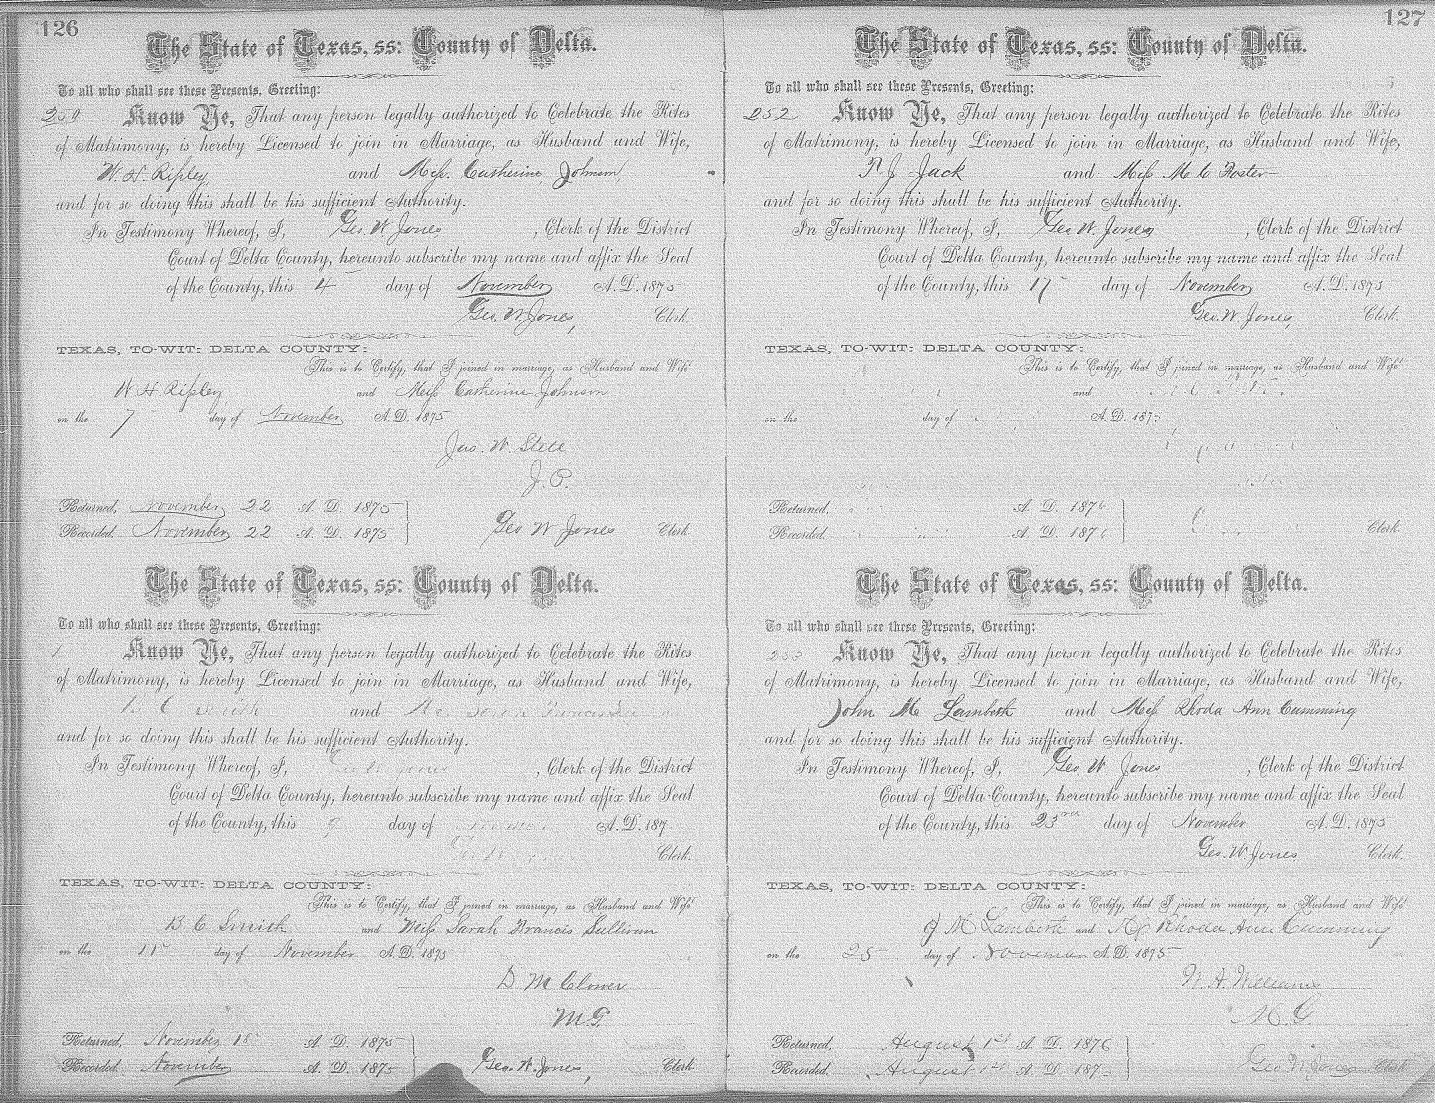 126
The State of Texas, ss: County of Delta.
To all who shall see these Presents, Greeting:
250 Know Ye, That any person legally authorized to Celebrate the Rites
of Matrimony, is hereby Licensed to join in Marriage, as Husband and Wife,
W. H. Ripley, and Miss. Catherine Johnson,
and for so doing this shall be his sufficient Authority.
In Testimony Whereof, I, Geo. W Jones , Clerk of the District
Court of Delta County, hereunto subscribe my name and affix the Seal
of the County, this 4 day of November A.D. 1875
Geo. W. Jones, Clerk.
TEXAS, TO-WIT: DELTA COUNTY:
This is to Certify, that I joined in marriage, as Husband and Wife
W H Ripley and Miss Catherine Johnson
on the 7 day of November A.D. 1875
Jno. W. Stell
J. P.
Returned, November 22 A. D. 1875
Recorded. November 22 A. D. 1875 Geo W Jones Clerk
The State of Texas, ss: County of Delta.
To all who shall see these Presents, Greeting:
Know Ye, That any person legally authorized to Celebrate the Rites
of Matrimony, is hereby Licensed to join in Marriage, as Husband and Wife,
and
and for so doing this shall be his sufficient Authority.
In Testimony Whereof, I, , Clerk of the District
Court of Delta County, hereunto subscribe my name and affix the Seal
of the County, this 9 day of A.D. 187
Clerk.
TEXAS, TO-WIT: DELTA COUNTY:
This is to Certify, that I joined in marriage, as Husband and Wife
B C Smith and Miss Sarah Francis Sullivan
on the 11 day of November A.D. 1875
D. M Clower
M. G.
Returned, November 18 A. D. 1875
Recorded. November A. D. 1875 Geo. W. Jones, Clerk
127
The State of Texas, ss: County of Delta.
To all who shall see these Presents, Greeting:
252 Know Ye, That any person legally authorized to Celebrate the Rites
of Matrimony, is hereby Licensed to join in Marriage, as Husband and Wife,
J Jack and Miss M C Foster
and for so doing this shall be his sufficient Authority.
In Testimony Whereof, I, Geo W. Jones , Clerk of the District
Court of Delta County, hereunto subscribe my name and affix the Seal
of the County, this 17 day of November A.D. 1875
Geo. W. Jones, Clerk.
TEXAS, TO-WIT: DELTA COUNTY:
This is to Certify, that I joined in marriage, as Husband and Wife
and
on the day of A.D. 187
Returned, A. D. 1876
Recorded. A. D. 187 Clerk.
The State of Texas, ss: County of Delta.
To all who shall see these Presents, Greeting:
253 Know Ye, That any person legally authorized to Celebrate the Rites
of Matrimony, is hereby Licensed to join in Marriage, as Husband and Wife,
John M Lambeth and Miss Rhoda Ann Cumming
and for so doing this shall be his sufficient Authority.
In Testimony Whereof, I, Geo W Jones , Clerk of the District
Court of Delta County, hereunto subscribe my name and affix the Seal
of the County, this 23rd day of November A.D. 1875
Geo. W Jones Clerk.
TEXAS, TO-WIT: DELTA COUNTY:
This is to Certify, that I joined in marriage, as Husband and Wife
J M Lambeth and Rhoda Ann Cumming
on the 25 day of November A.D. 1875
W. A. Williams
M. G.
Returned, August 1st A. D. 1876
Recorded. August 1st A. D. 187 Geo W Jones Clerk